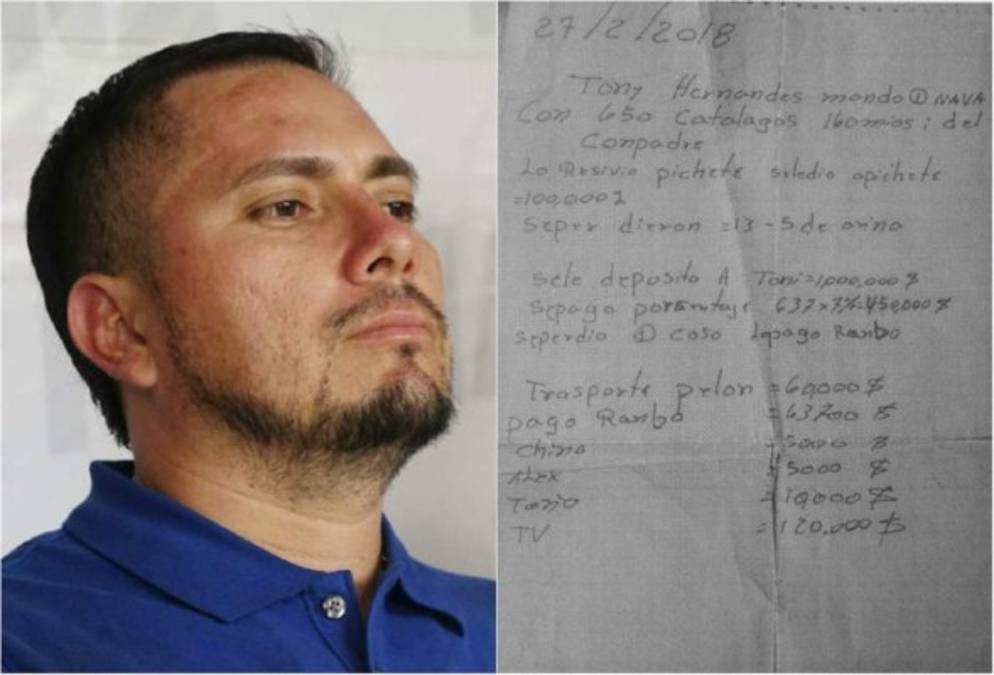 27/2/2018
Tony Hernandes mando ① NAVA
Con 650 Catalagos 160 mios i del
Conpadre
Lo Resivio pichete seledio apichete
=100,000 $
Seper dieron =13 -5 de arina
Sele deposito A Toni=1,000,000 $
Sepago porsentaje 637x7%=450,000 $
seperdio ① coso Lopago Ranbo
Trasporte pelon =60,000 $
pago Ranbo =63700 $
China =5000 $
Alex =5000 $
=10,000 $
TV =120.000 $